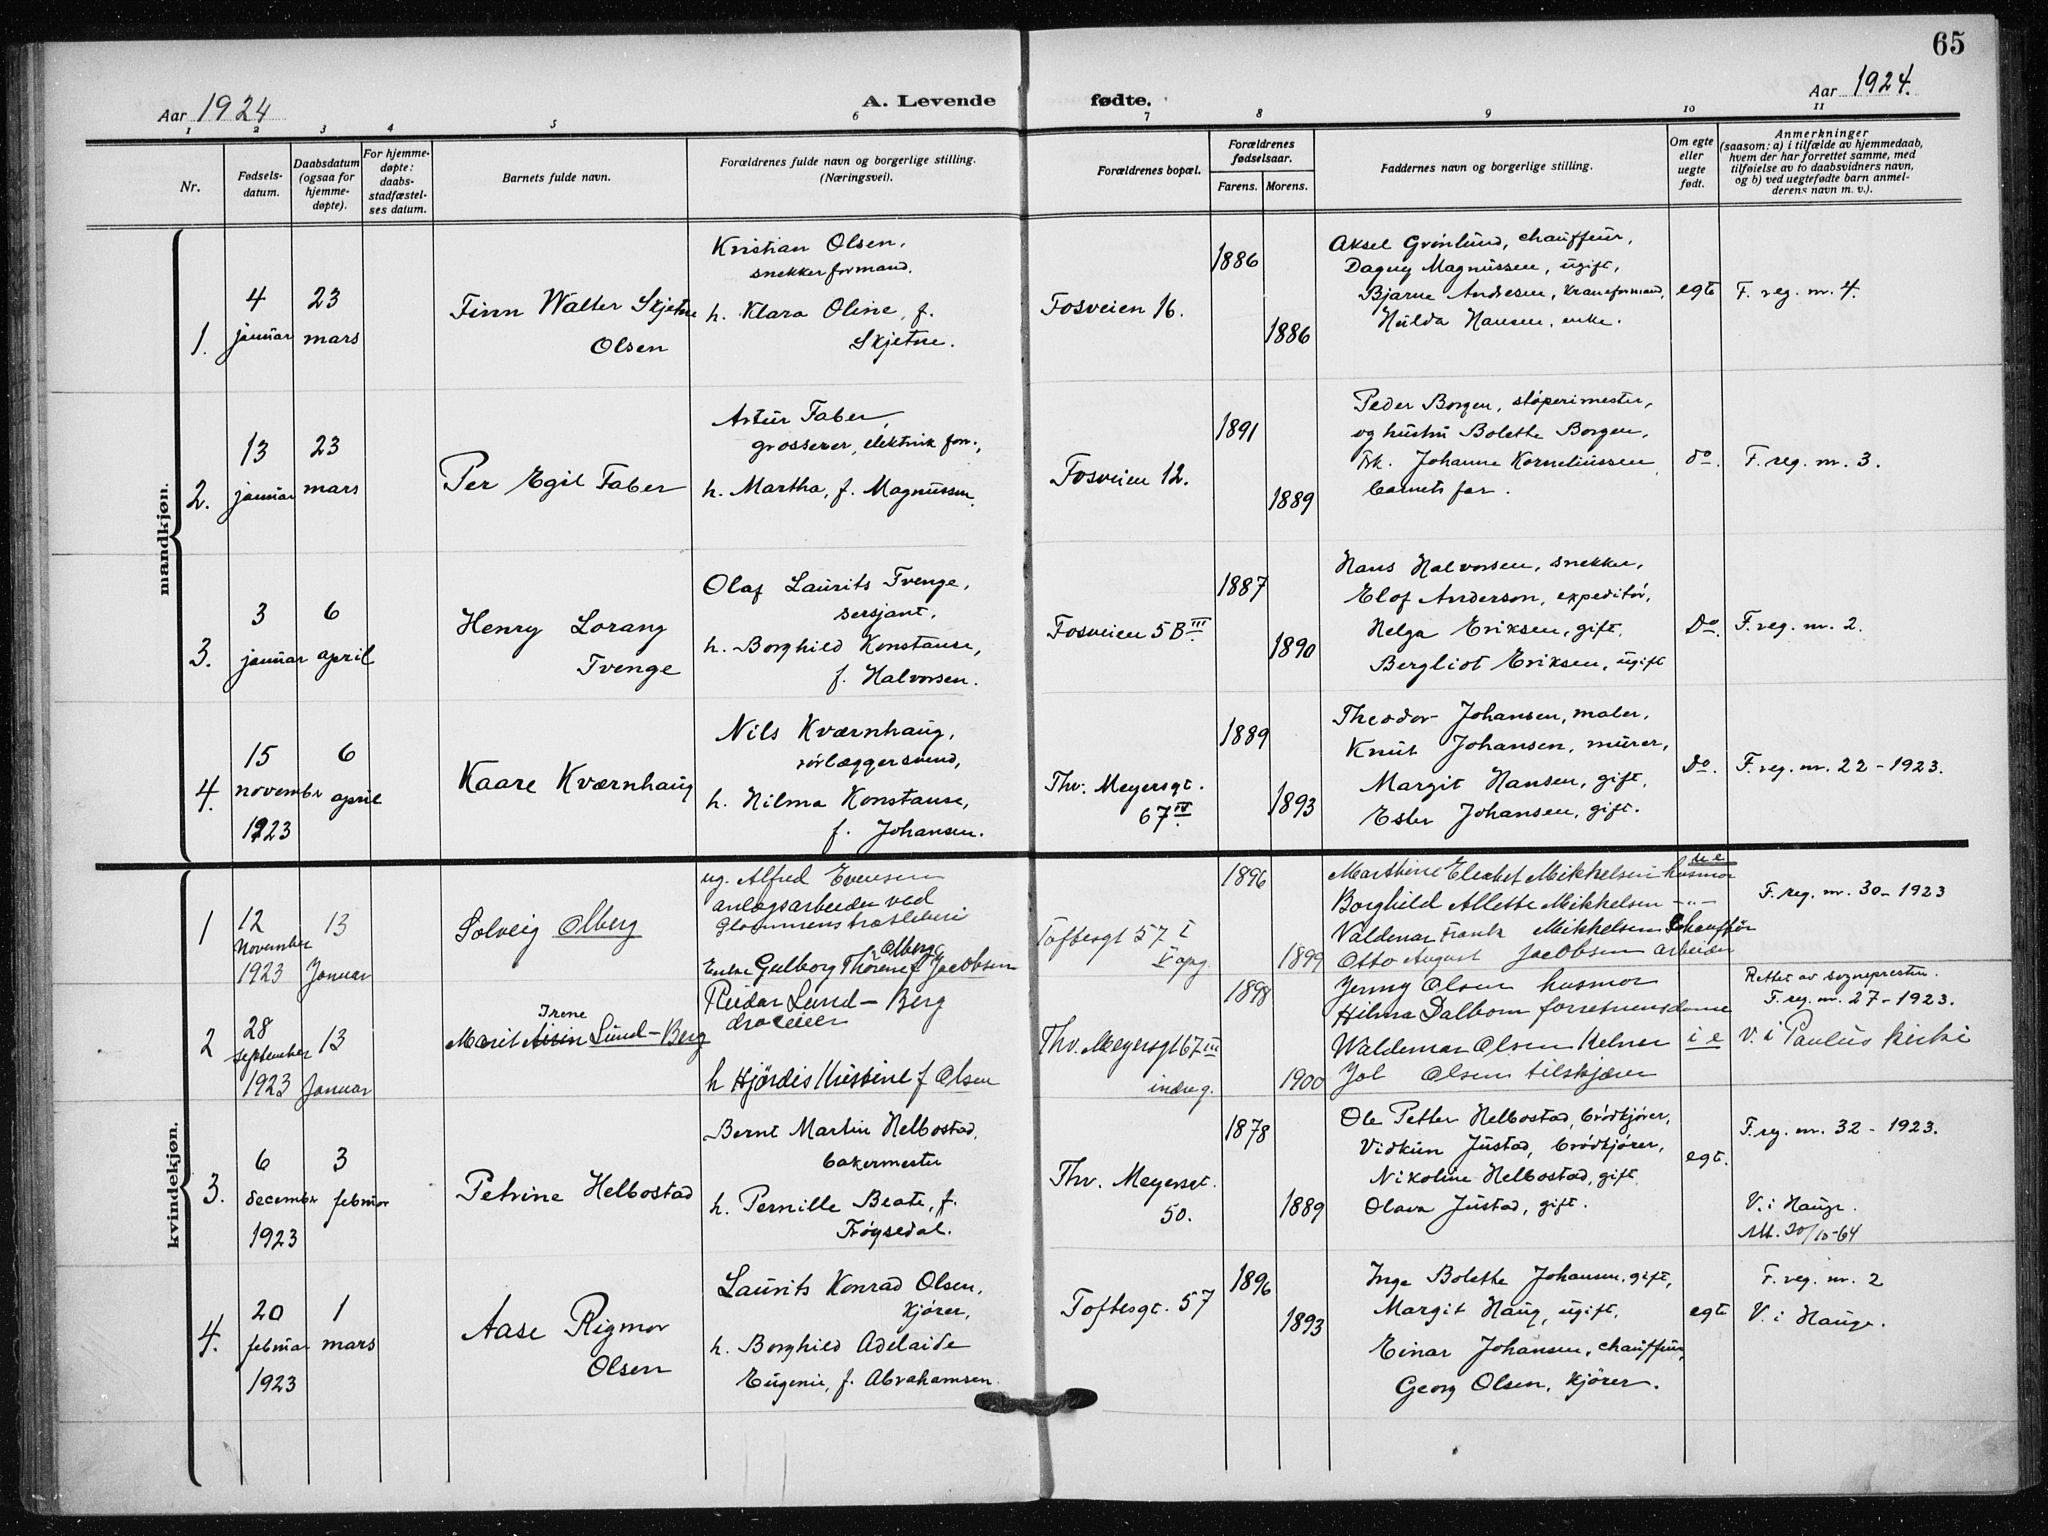 65
Aar 1924
A. Levende fødte.
Aar 1924.
1 2 3 4 5 6 7 8 9 10 11
Nr.
Fødsels-
datum.
Daabsdatum
(ogsaa for
hjemme-
døpte).
For hjemme-
døpte:
daabs-
stadfæstel-
ses datum.
Barnets fulde navn.
Forældrenes fulde navn og borgerlige stilling.
(Næringsvei).
Forældrenes bopæl.
Forældrenes
fødselsaar.
Farens. Morens.
Faddernes navn og borgerlige stilling.
Om egte
eller
uegte
født.
Anmerkninger
(saasom: a) i tilfælde av hjemmedaab,
hvem der har forrettet samme, med
tilføielse av to daabsvidners navn,
og b) ved uegtefødte barn anmel-
derens navn m. v.).
mandkjøn.
1.
4
januar
23
mars
Finn Walter Skjetne
Olsen
Kristian Olsen,
snekkerformand.
h. Klara Oline, f.
Skjetne.
Fosveien 16.
1886
1886
Aksel Grønlund, chauffeur,
Dagny Magnussen, ugift,
Bjarne Andresen, kraneformand,
Hulda Hansen, enke.
egte
F. reg. nr. 4.
2.
13
januar
23
mars
Per Egil Faber
Artur Faber,
grosserer, elektrik forr.,
h. Martha, f. Magnussen.
Fosveien 12.
1891
1889
Peder Borgen, støperimester,
og hustru Bolette Borgen,
Frk. Johanne Korneliussen
barnets far.
do.
F. reg. nr. 3.
3.
3
januar
6
april
Henry Lorang
Tvenge
Olaf Laurits Tvenge,
sersjant,
h. Borghild Konstanse,
f. Halvorsen.
Fosveien 5 B III
1887
1890
Hans Halvorsen, snekker,
Elof Anderson, expeditør,
Helga Eriksen, gift,
Bergliot Eriksen, ugift
Do.
F. reg. nr. 2.
4.
15
novembr
1923
6
april
Kaare Kværnhaug
Nils Kværnhaug,
rørlæggersvend,
h. Hilma Konstanse,
f. Johansen.
Thv. Meyersgt.
67 IV.
1889
1893
Theodor Johansen, maler,
Knut Johansen, murer,
Margit Hansen, gift,
Ester Johansen, gift.
Do.
F. reg. nr. 22 - 1923.
kvindekjøn.
1
12
November
1923
13
Januar
Solveig Olberg
ug. Alfred Evensen
anlægsarbeider ved
Glommens træsliberi
Olberg
Enke Gulborg Thorene f Jacobsen
Toftesgt 57 I
V opg.
1896
1899
Marthine Elisabet Mikkelsen husmor
Borghild Allette Mikkelsen -"-
Valdemar Frantz Mikkelsen Chauffør
Otto August Jacobsen arbeider
u e
F. reg. nr. 30 - 1923
2
28
September
1923
13
Januar
Irene
Marit Lund-Berg
Reidar Lund-Berg
h Hjørdis Kristine f Olsen
Thv. Meyersgt 67 III
indreg.
1898
1900
Jenny Olsen husmor
Hilma Dalbom forretningsdame
Waldemar Olsen Kelner
Jol Olsen tilskjærer
i e
Rettet av sognepresten.
F. reg. nr. 27 - 1923.
V. i Paulus kirke
3.
6
decembr
1923
3
februar
Petrine Helbostad
Bernt Martin Helbostad,
bakermester
h. Pernille Beate, f.
Frøysedal.
Thv. Meyersgt.
50.
1878
1889
Ole Petter Helbostad, brødkjører,
Vidkun Justad, brødkjører,
Nikoline Helbostad, gift,
Olava Justad, gift.
egt.
F. reg. nr. 32 - 1923.
V. i Hauge.
Att. 30/10-64
4.
20
februar
1923
1
mars
Aase Rigmor
Olsen
Laurits Konrad Olsen,
kjører,
h. Borghild Adelaide
Eugenie, f. Abrahamsen.
Toftesgt. 57
1896
1893
Inga Bolette Johansen, gift,
Margit Haug, ugift,
Einar Johansen, chauffeur,
Georg Olsen, kjører.
egt
F. reg. nr. 2
V. i Hauge.